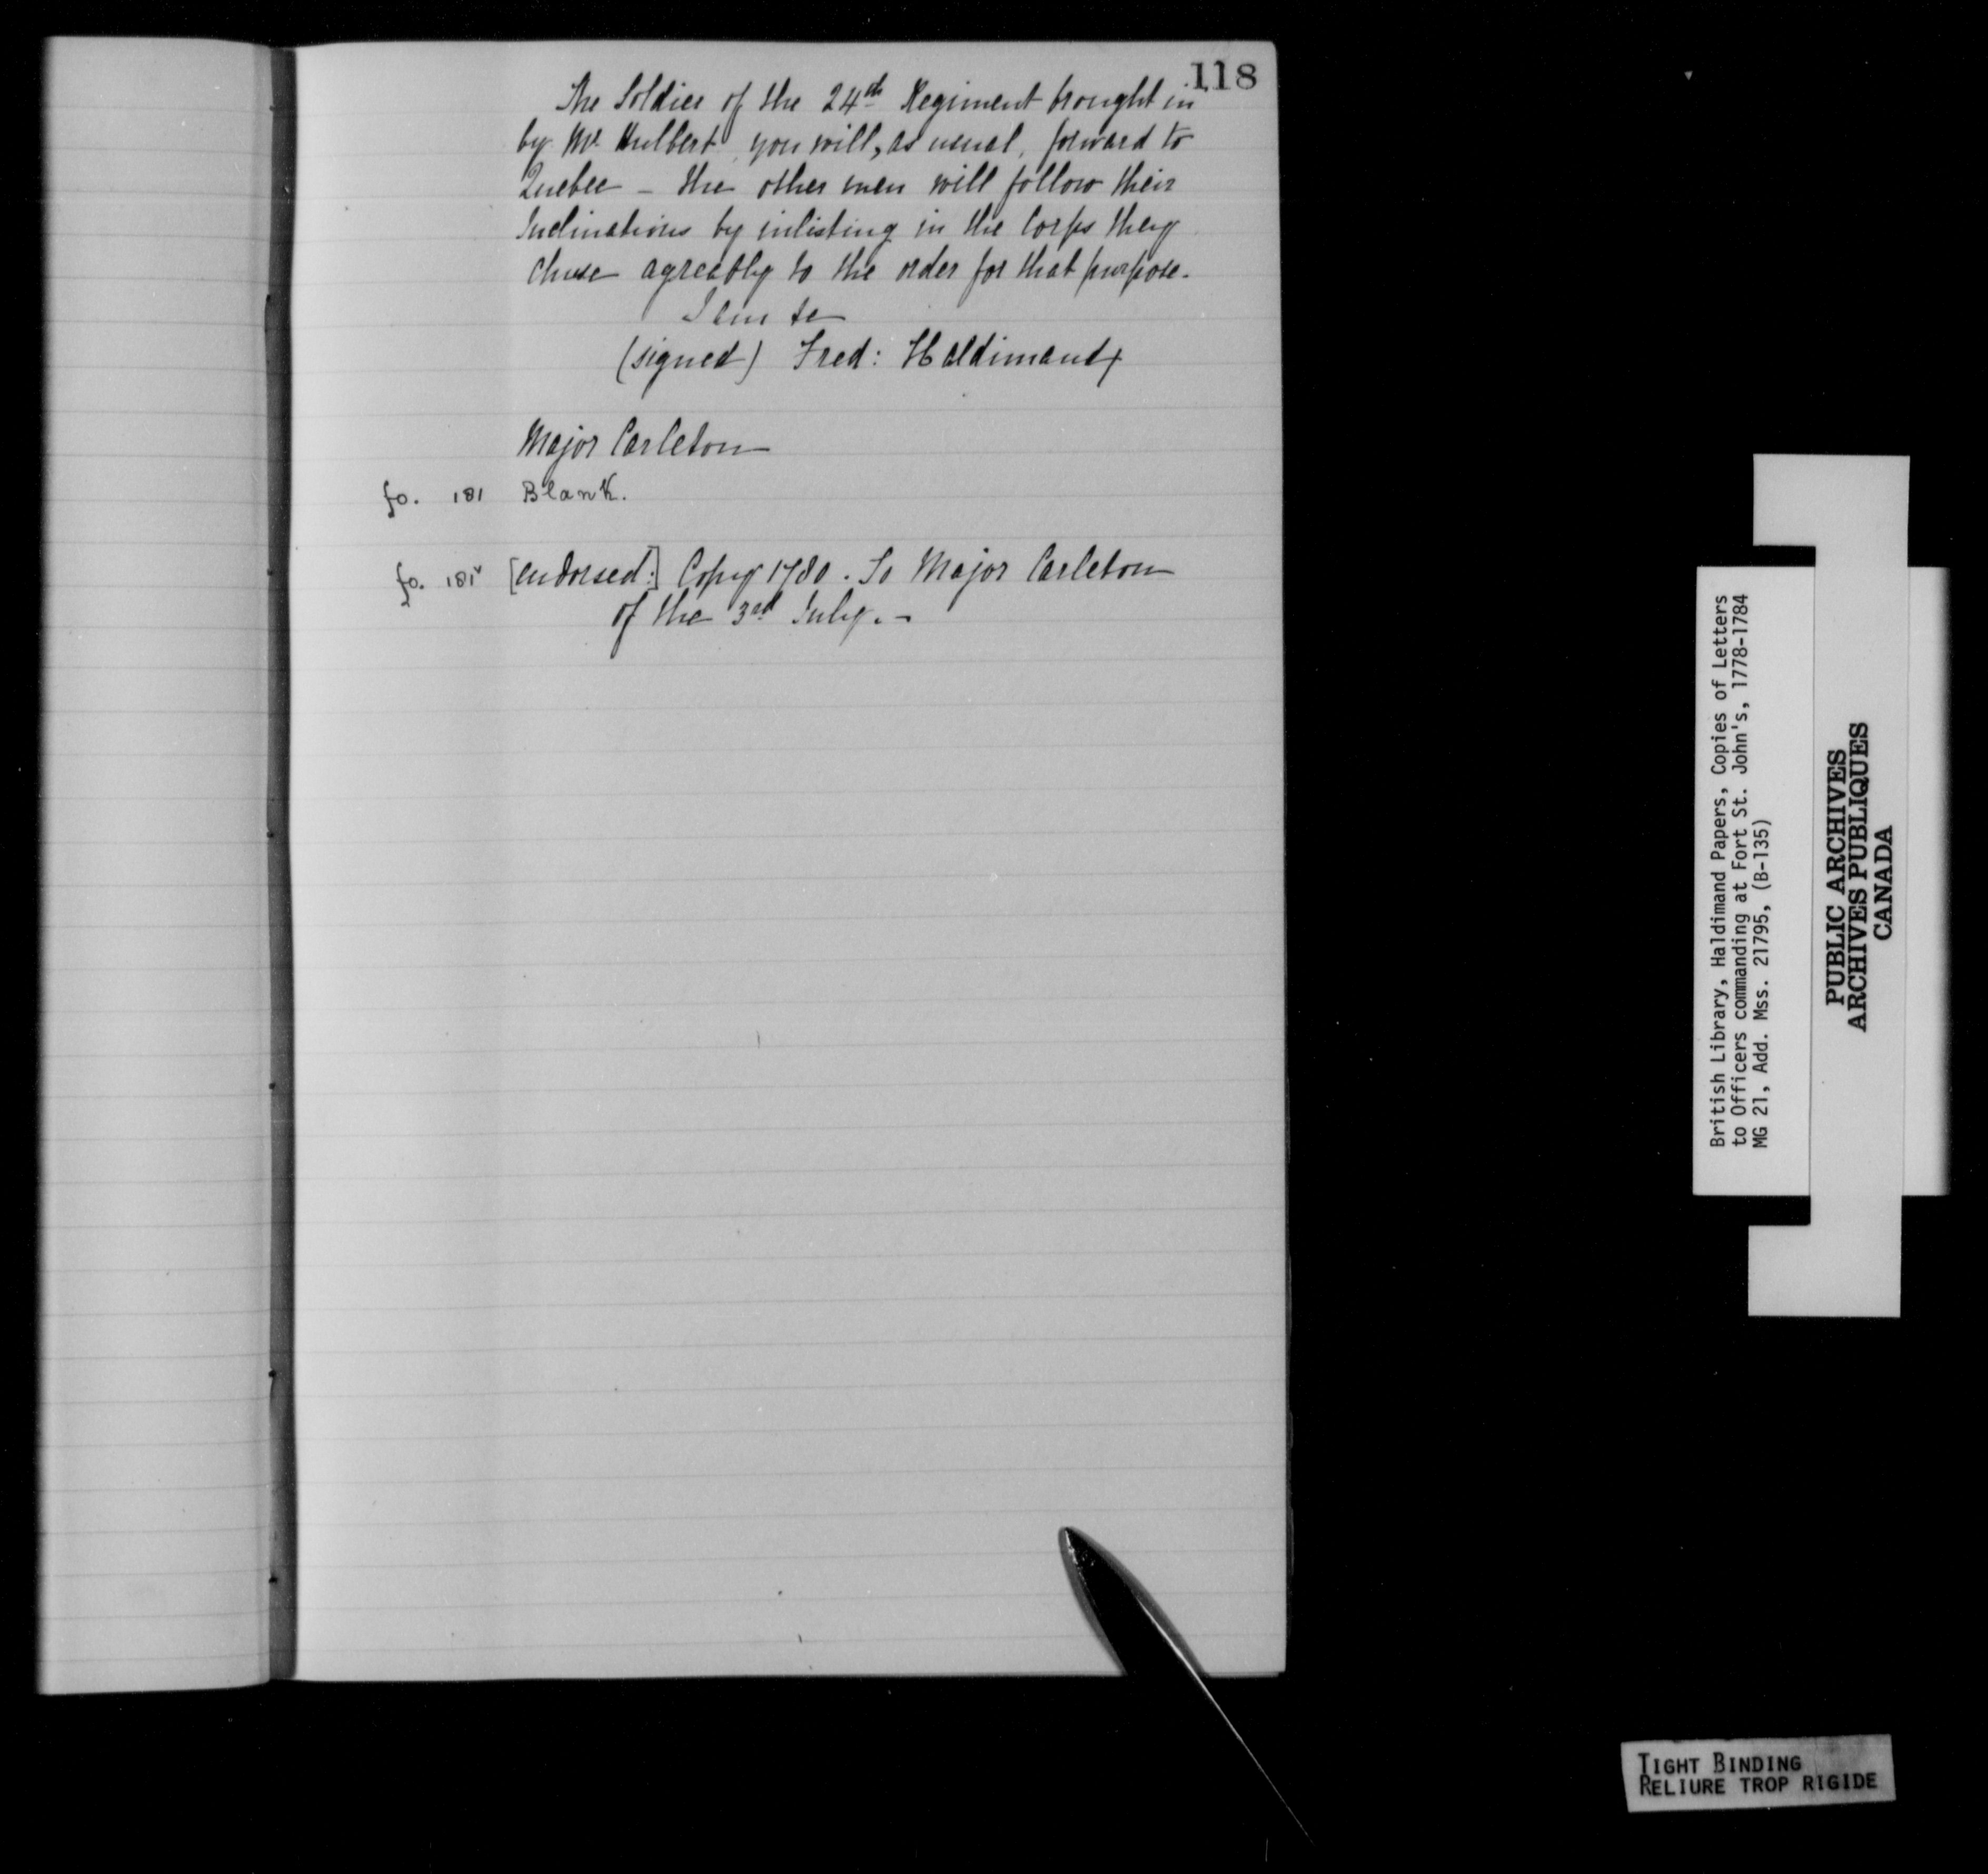 118
The Soldier of the 24th Regiment brought in
by Mr. Hulbert you will, as usual, forward to
Quebec - the other men will follow their
Inclinations by inlisting in the Corps they
chuse agreably to the order for that purpose.
I am &c
(signed) Fred: Haldimand
Major Carleton
fo. 181 Blank.
fo. 181v [endorsed:] Copy 1780. To Major Carleton
of the 3rd July. -
British Library, Haldimand Papers, Copies of Letters
to Officers commanding at Fort St. John's, 1778-1784
MG 21, Add. Mss. 21795, (B-135)
PUBLIC ARCHIVES
ARCHIVES PUBLIQUES
CANADA
TIGHT BINDING
RELIURE TROP RIGIDE